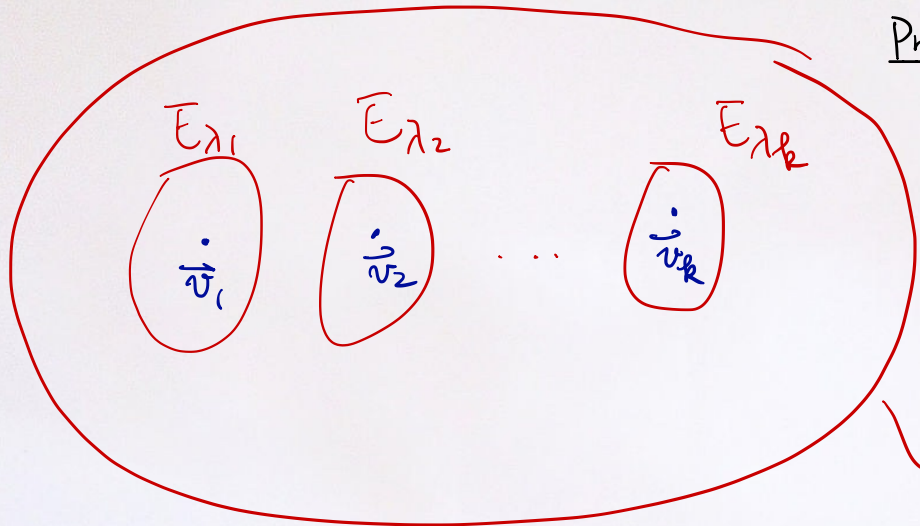 Pr
E_λ1 E_λ2 E_λk
v⃗_1 v⃗_2 ... v⃗_k